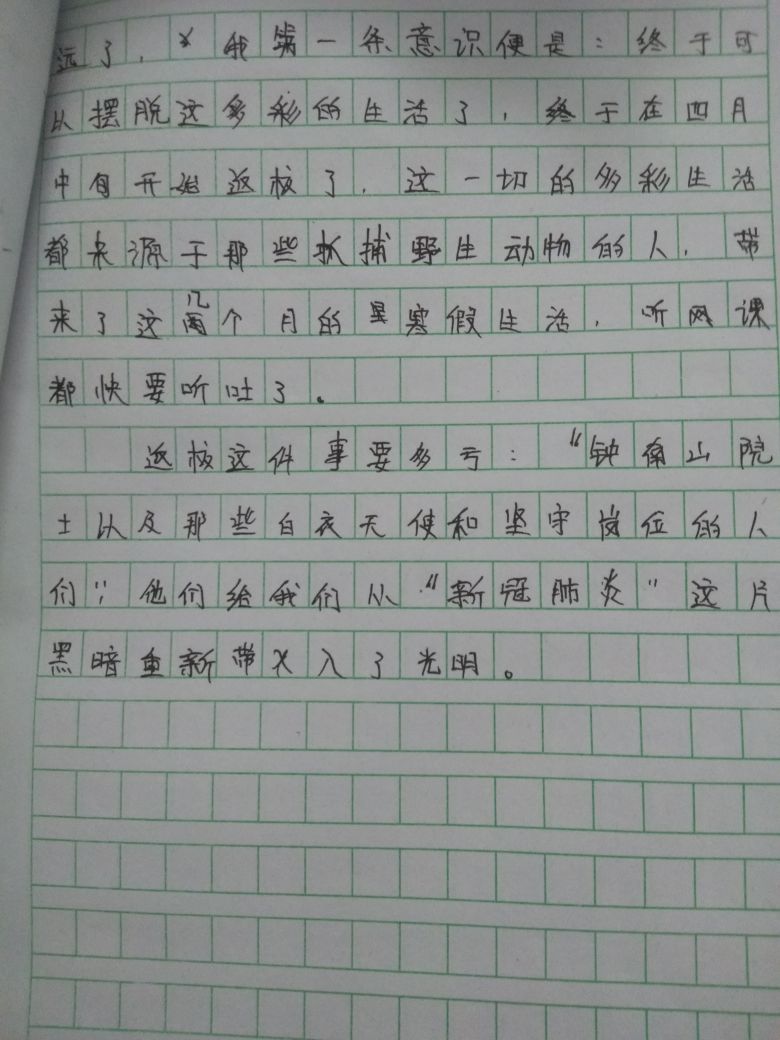 远了，我第一条意识便是：终于可
以摆脱这多彩的生活了，终于在四月
中旬开始返校了，这一切的多彩生活
都来源于那些抓捕野生动物的人，带
来了这几个月的寒假生活，听网课
都快要听吐了。
返校这件事要多亏：“钟南山院
士以及那些白衣天使和坚守岗位的人
们”，他们给我们从“新冠肺炎”这片
黑暗重新带入了光明。